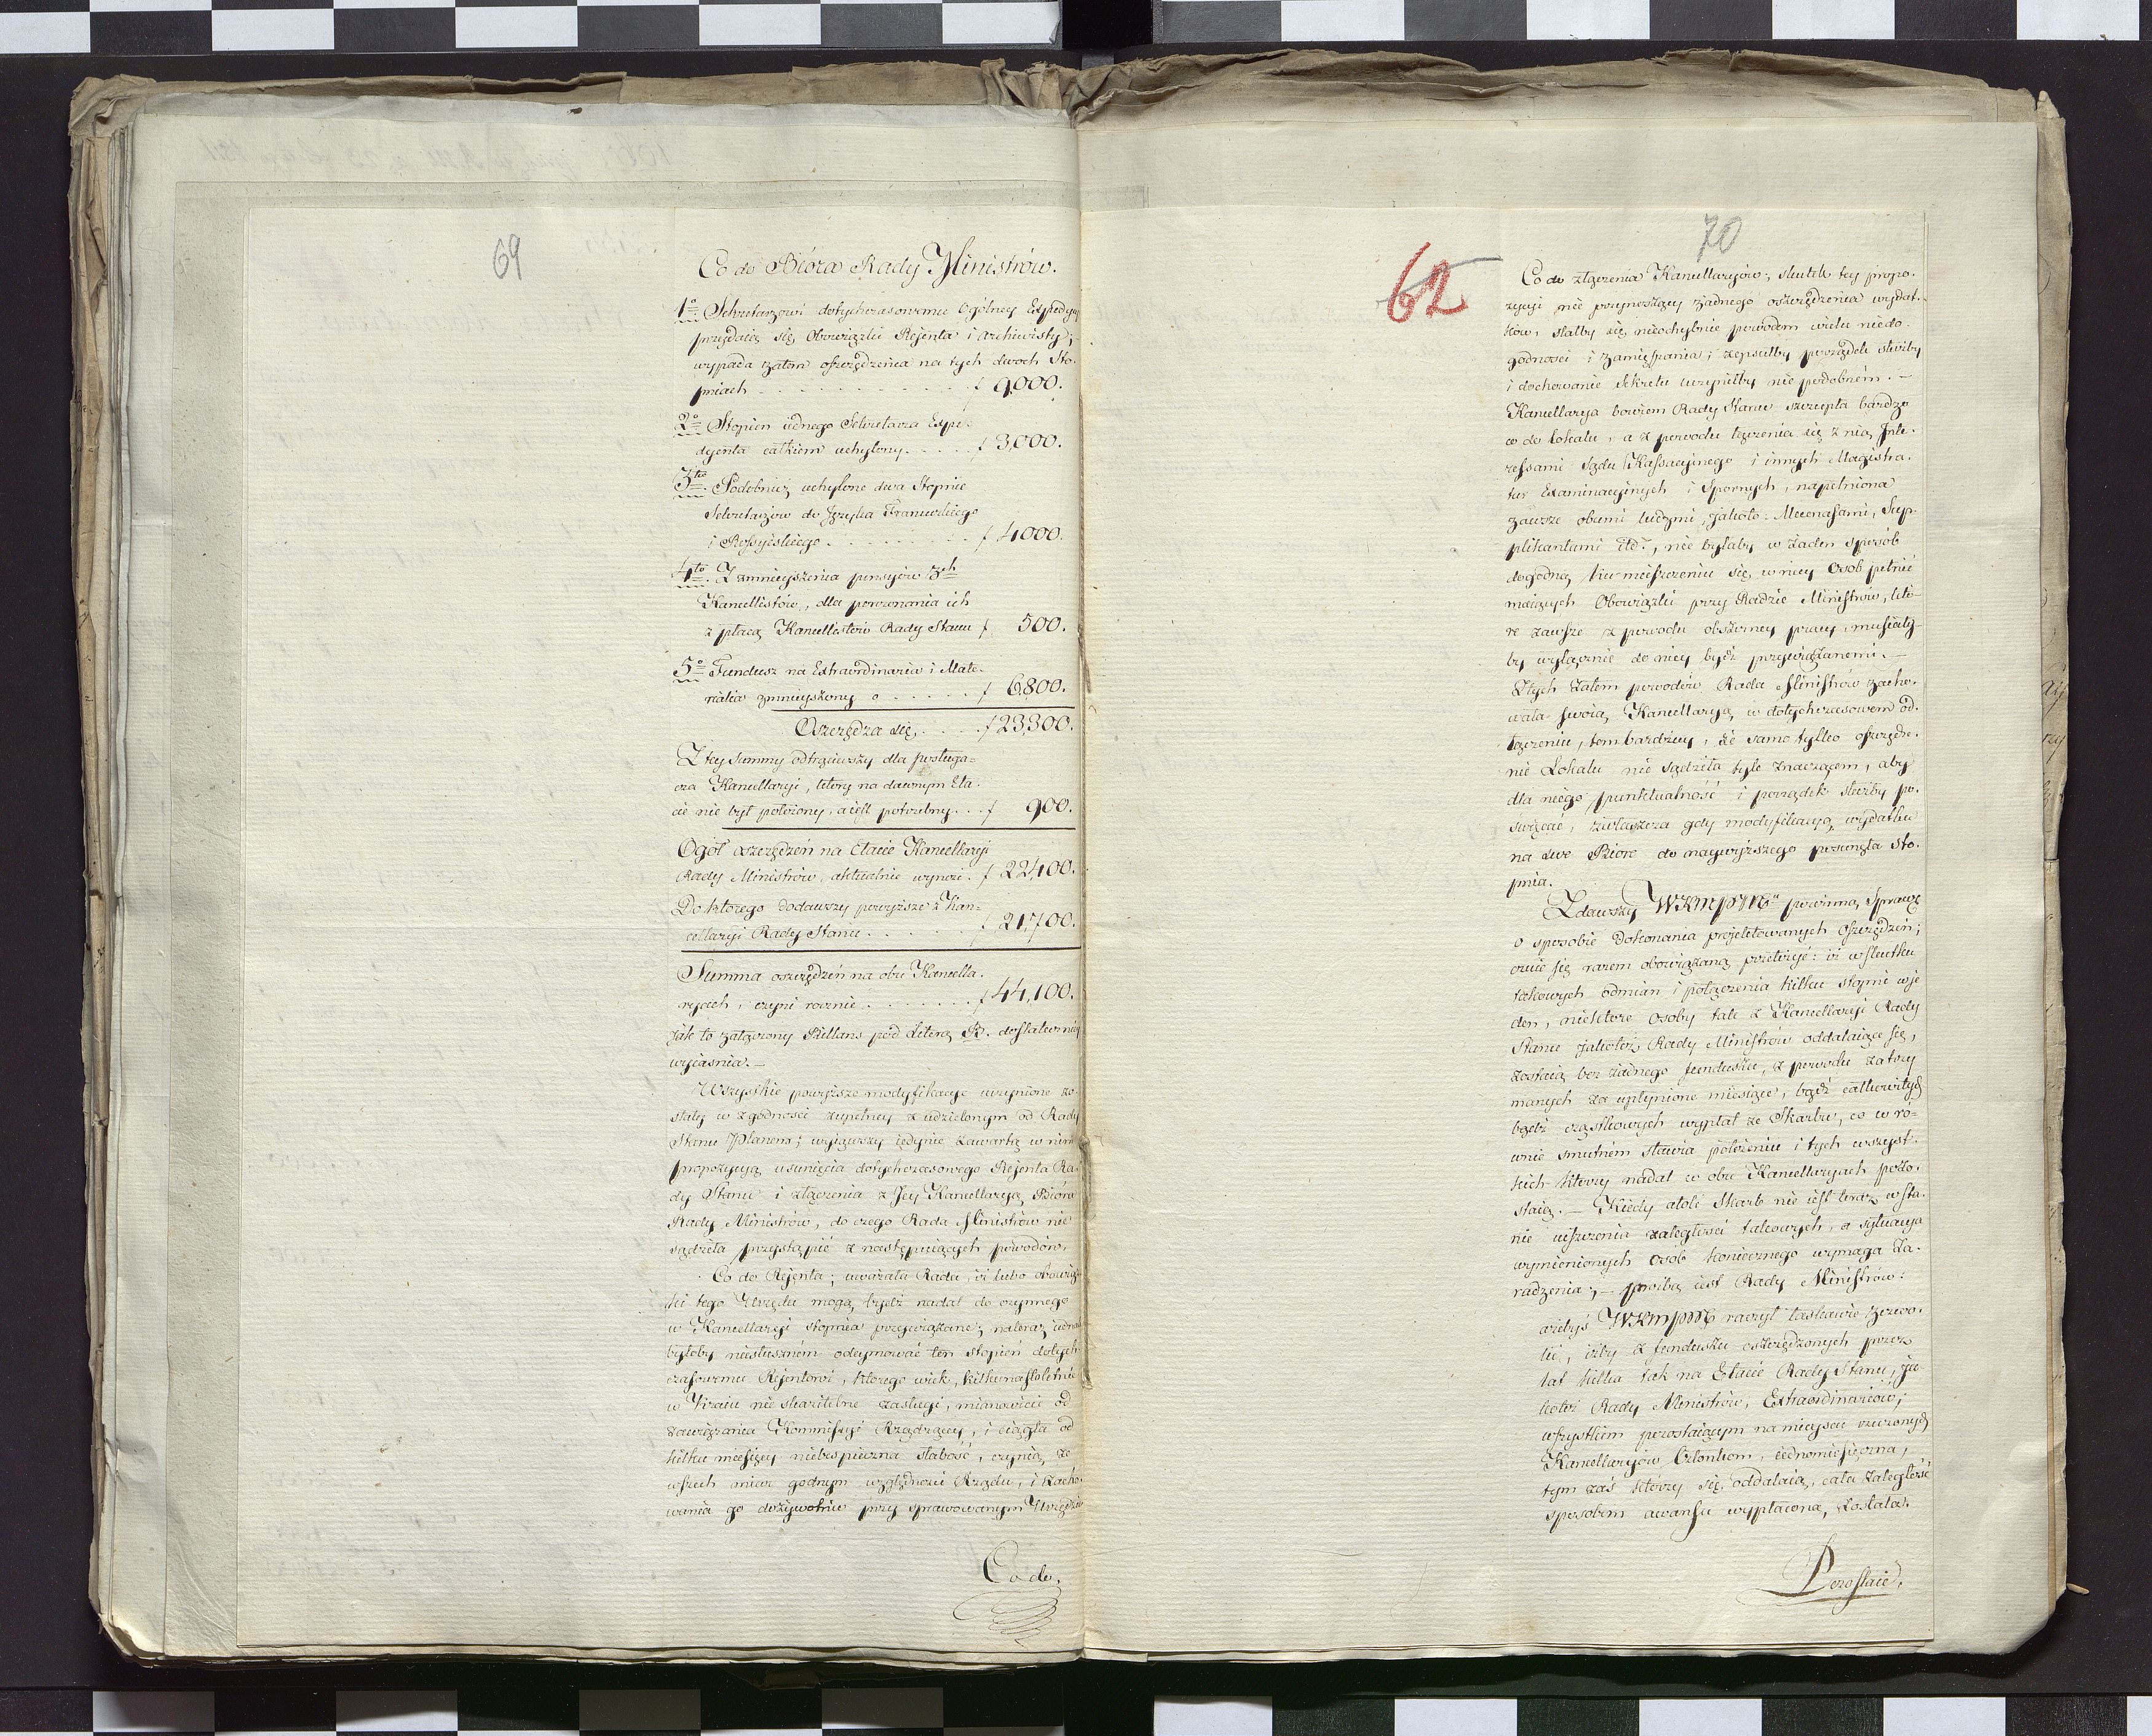 69
Co do Bióra Rady Ministrów.
1º Sekretarzowi dotychczasowemu Ogólney Expedycyi
przydaią się, Obowiązki Rejenta i Archiwisty,
wypada zatem oszczędzenia na tych dwoch Sto-
pniach . . . . . . . . . . f 9,000.
2º Stopień iednego Sekretarza Expe-
dyenta całkiem uchylony . . . . . f 3,000.
3tio Podobnież uchylone dwa Stopnie
Sekretarzów do Języka Francuzkiego
i Rossyiskiego . . . . . . . . . f 4000.
4to Zmnieyszenia pensyiów 3ch
Kancellistów, dla porównania ich
z płacą Kancellistów Rady Stanu f 500.
5º Fundusz na Extraordinaria i Mate-
rialia zmnieyszony o . . . . . . f 6,800.
Oszczędza się . . . . f 23,300.
Z tey Summy odtrąciwszy dla posługa-
cza Kancellaryi, który na dawnym Eta-
cie nie był położony, a iest potrzebny . . . f 900.
Ogół oszczędzeń na Etacie Kancellaryi
Rady Ministrów, aktualnie wynosi . f 22,400.
Do którego dodawszy powyższe z Kan-
cellaryi Rady Stanu . . . . . . f 21,700.
Summa oszczędzeń na obu Kancella-
ryach, czyni rocznie . . . . . . . f 44,100.
Jak to załączony Billans pod Literą B. dostateczniey
wyiaśnia. —
Wszystkie powyższe modyfikacye uczynione zo-
stały w zgodności zupełney z udzielonym od Rady
Stanu Planem; wyiąwszy iedynie zawartą w nim
propozycyą usunięcia dotychczasowego Rejenta Ra-
dy Stanu i złączenia z Jey Kancellaryą Bióra
Rady Ministrów, do czego Rada Ministrów nie
sądziła przystąpić z następuiących powodów.
Co do Rejenta; uważała Rada, iż lubo obowiąz-
ki tego Urzędu mogą bydź nadal do czynnego
w Kancellaryi stopnia przywiązane, nateraz iednak
byłoby niesłusznem odeymować ten stopień dotych-
czasowemu Rejentowi, którego wiek, kilkunastoletnie
w Kraiu nieskazitelne zasługi, mianowicie od
zawiązania Kommissyi Rządzącey, i ciągła od
kilku miesięcy niebespieczna słabość, czynią ze
wszech miar godnym względności Rządu, i zacho-
wania go dożywotnie przy sprawowanym Urzędzie
Co do.
62
70
Co do złączenia Kancellaryiów; skutek tey propo-
zycyi nie przynoszący żadnego oszczędzenia wydat-
ków, stałby się nieochybnie powodem wielu niedo-
godności i zamięszania; zepsułby porządek służby
i dochowanie sekretu uczyniłby niepodobném. —
Kancellarya bowiem Rady Stanu szczupła bardzo
co do Lokalu, a z powodu łączenia się z nią Inte-
ressami Sądu Kassacyinego i innych Magistra-
tur Examinacyinych i Spornych, napełniona
zawsze obcemi ludźmi, jakoto: Mecenasami, Sup-
plikantami itd., nie byłaby w żaden sposób
dogodną ku mieszczeniu się w niey Osób pełnić
maiących Obowiązki przy Radzie Ministrów, któ-
re zawsze z powodu obszerney pracy musiały-
by wyłącznie do niey bydź przywiązanemi. —
Z tych zatem powodów Rada Ministrów zacho-
wała swoią Kancellaryą w dotychczasowem od-
łączeniu, tembardziey, że samo tylko oszczędze-
nie Lokalu nie sądziła tyle znaczącem, aby
dla niego punktualność i porządek służby po-
święcać, zwłaszcza gdy modyfikacyą wydatku
na swe Bióro do naywyższego posunęła sto-
pnia.
Zdawszy WKMPM powinną Sprawę
o sposobie dokonania projektowanych Oszczędzeń;
czuie się razem obowiązaną przełożyć: iż w skutku
takowych odmian i połączenia kilku stopni w je-
den, niektóre Osoby tak z Kancellaryi Rady
Stanu jakoteż Rady Ministrów oddalaiące się,
zostaią bez żadnego funduszu, z powodu zatrzy-
manych za upłynione miesiące, bądź całkowitych
bądź cząstkowych wypłat ze Skarbu, co w ró-
wnie smutném stawia położeniu i tych wszyst-
kich którzy nadal w obu Kancellaryach pozo-
staią. — Kiedy atoli Skarb nie iest teraz w sta-
nie uiszczenia zaległości takowych, a sytuacya
wymienionych Osób koniecznego wymaga za-
radzenia; — prośbą iest Rady Ministrów:
ażebyś WKMPM raczył łaskawie zezwo-
lić, iżby z funduszu oszczędzonych przez
lat kilka tak na Etacie Rady Stanu, ja-
koteż Rady Ministrów, Extraordinariów;
wszystkim pozostaiącym na mieyscu rzeczonych
Kancellaryów Członkom, iednomiesięczna,
tym zaś którzy się oddalaią, cała zaległość
sposobem awansu wypłaconą została.
Pozostaie.